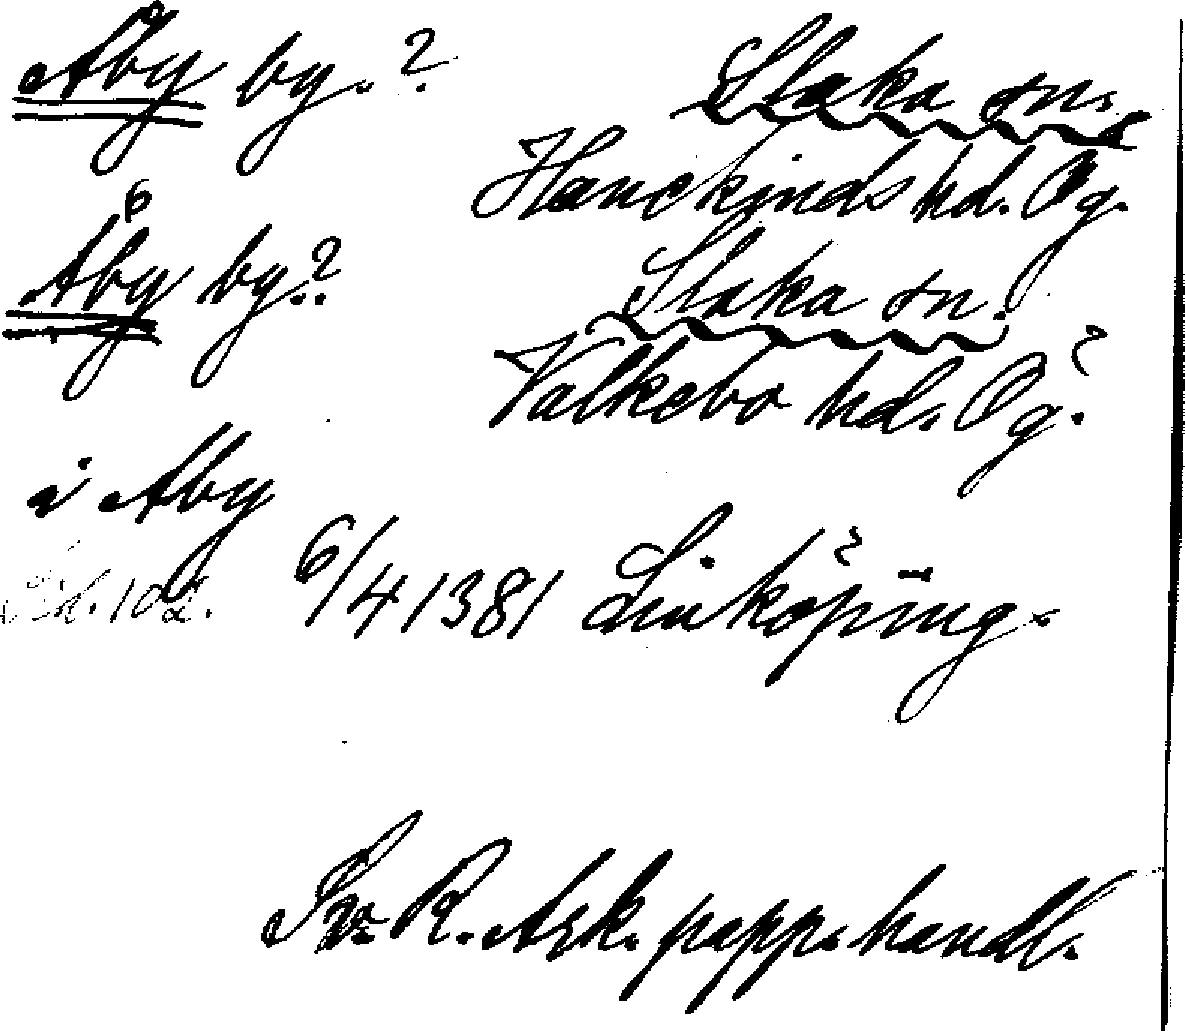 Åby by.? Slaka sn.
Hanekinds hd. Ög.
Åby by.? Slaka sn.
Valkebo hd. Ög.
i Aby
6/4 1381 Linköping.
Sv. R. Ark. papp. handl.